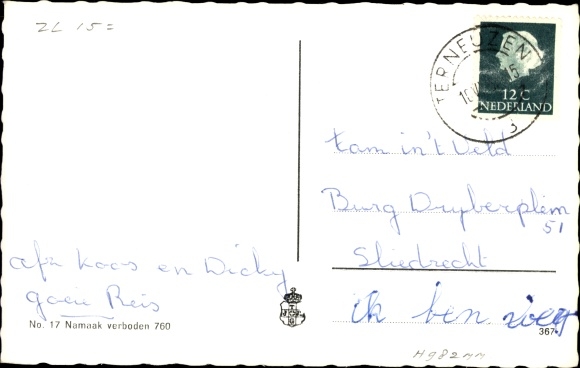 ZL 15=
TERNEUZEN
15
3
12 C
NEDERLAND
Fam in't Veld
Burg Dryberplein
51
Sliedrecht
afz Koos en Dicky
goeie Reis
ik ben
No. 17 Namaak verboden 760
367
H982mm